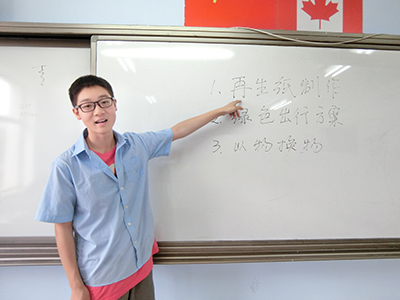 1. 再生纸制作
2. 绿色出行方案
3. 以物换物